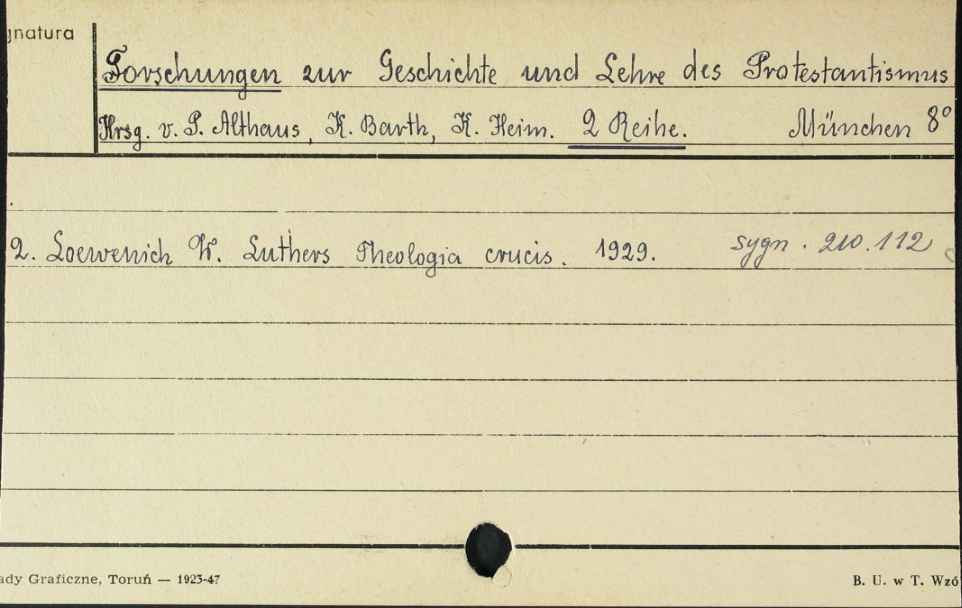 gnatura
Forschungen zur Geschichte und Lehre des Protestantismus
Hrsg. v. P. Althaus, K. Barth, K. Heim. 2 Reihe. München 8°
2. Loewenich W. Luthers Theologia crucis. 1929. sygn. 210.112
ady Graficzne, Toruń — 1923-47 B. U. w T. Wzó